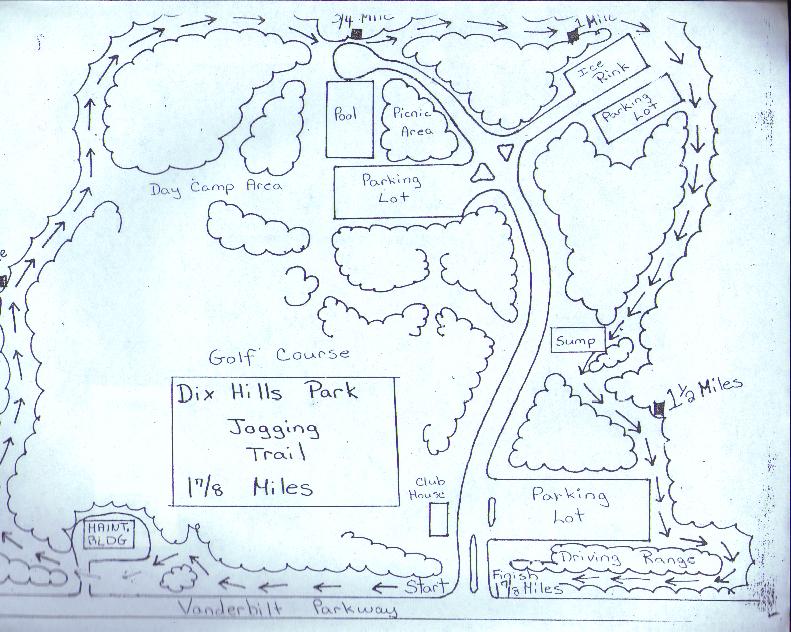 3/4 Mile
1 Mile
Ice
Rink
Parking
Lot
Pool
Picnic
Area
Day Camp Area
Parking
Lot
Golf Course
Sump
Dix Hills Park
Jogging
Trail
1 7/8 Miles
1 1/2 Miles
Club
House
Parking
Lot
MAINT.
BLDG
Driving Range
Start
Finish
1 7/8 Miles
Vanderbilt Parkway